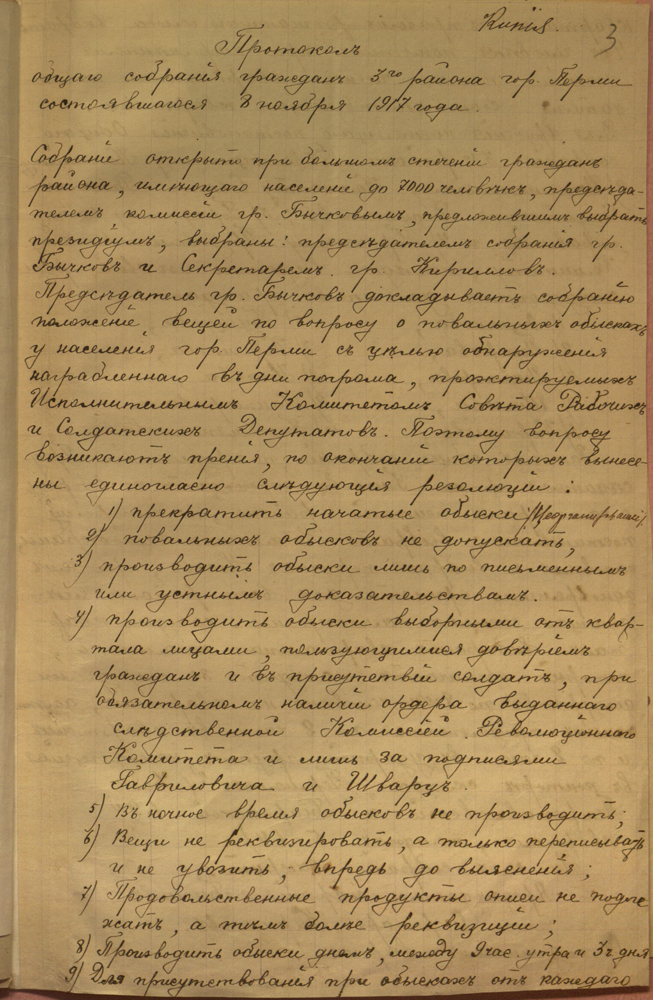 Копія.
3
Протоколъ
общаго собранія гражданъ 3го района гор. Перми
состоявшагося 8 ноября 1917 года.
Собраніе открыто при большомъ стеченіи гражданъ
района, имѣющаго населеніе до 7000 человѣкъ, предсѣда-
телемъ комиссіи гр. Бычковымъ, предложившимъ выбрать
президіумъ, выбраны: предсѣдателемъ собранія гр.
Бычковъ и Секретаремъ гр. Кирилловъ.
Предсѣдатель гр. Бычковъ докладываетъ собранію
положеніе вещей по вопросу о повальныхъ обыскахъ
у населенія гор. Перми съ цѣлью обнаруженія
награбленнаго въ дни погрома, проэктируемыхъ
Исполнительнымъ Комитетомъ Совѣта Рабочихъ
и Солдатскихъ Депутатовъ. Поэтому вопросу
возникаютъ пренія, по окончаніи которыхъ вынесе-
ны единогласно слѣдующія резолюціи:
1) прекратить начатые обыски
2) повальныхъ обысковъ не допускать,
3) производить обыски лишь по письменнымъ
или устнымъ доказательствамъ.
4) производить обыски выборными отъ квар-
тала лицами, пользующимися довѣріемъ
гражданъ и въ присутствіи солдатъ, при
обязательномъ наличіи ордера выданнаго
слѣдственной Комиссіей Революціоннаго
Комитета и лишь за подписями
Гавриловича и Шварцъ.
5) Въ ночное время обысковъ не производить;
6) Вещи не реквизировать, а только переписывать
и не увозить, впредь до выясненія;
7) Продовольственные продукты описи не подле
жатъ, а тѣмъ болѣе реквизиціи;
8) Производить обыски днемъ, между 9 час. утра и 3 ч дня.
9) Для присутствованія при обыскахъ отъ каждаго